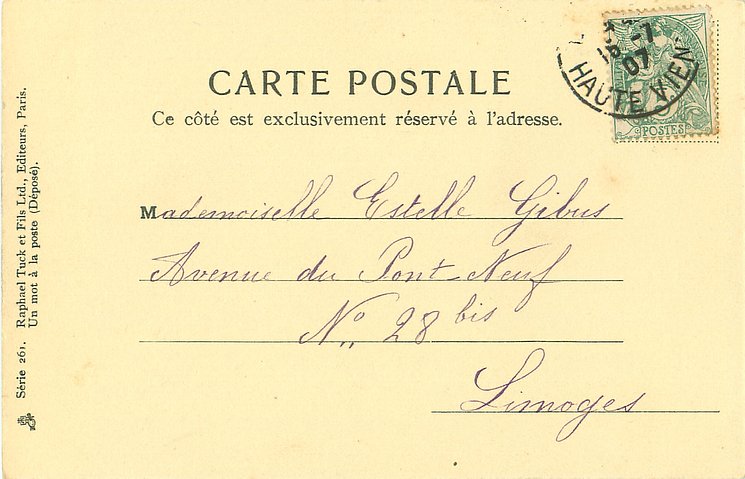 CARTE POSTALE
Ce côté est exclusivement réservé à l'adresse.
Mademoiselle Estelle Gibus
Avenue du Pont Neuf
No 28 bis
Limoges
Série 261. Raphael Tuck et Fils Ltd., Editeurs, Paris.
Un mot à la poste (Déposé).
16 -7
07
HAUTE VIEN
POSTES